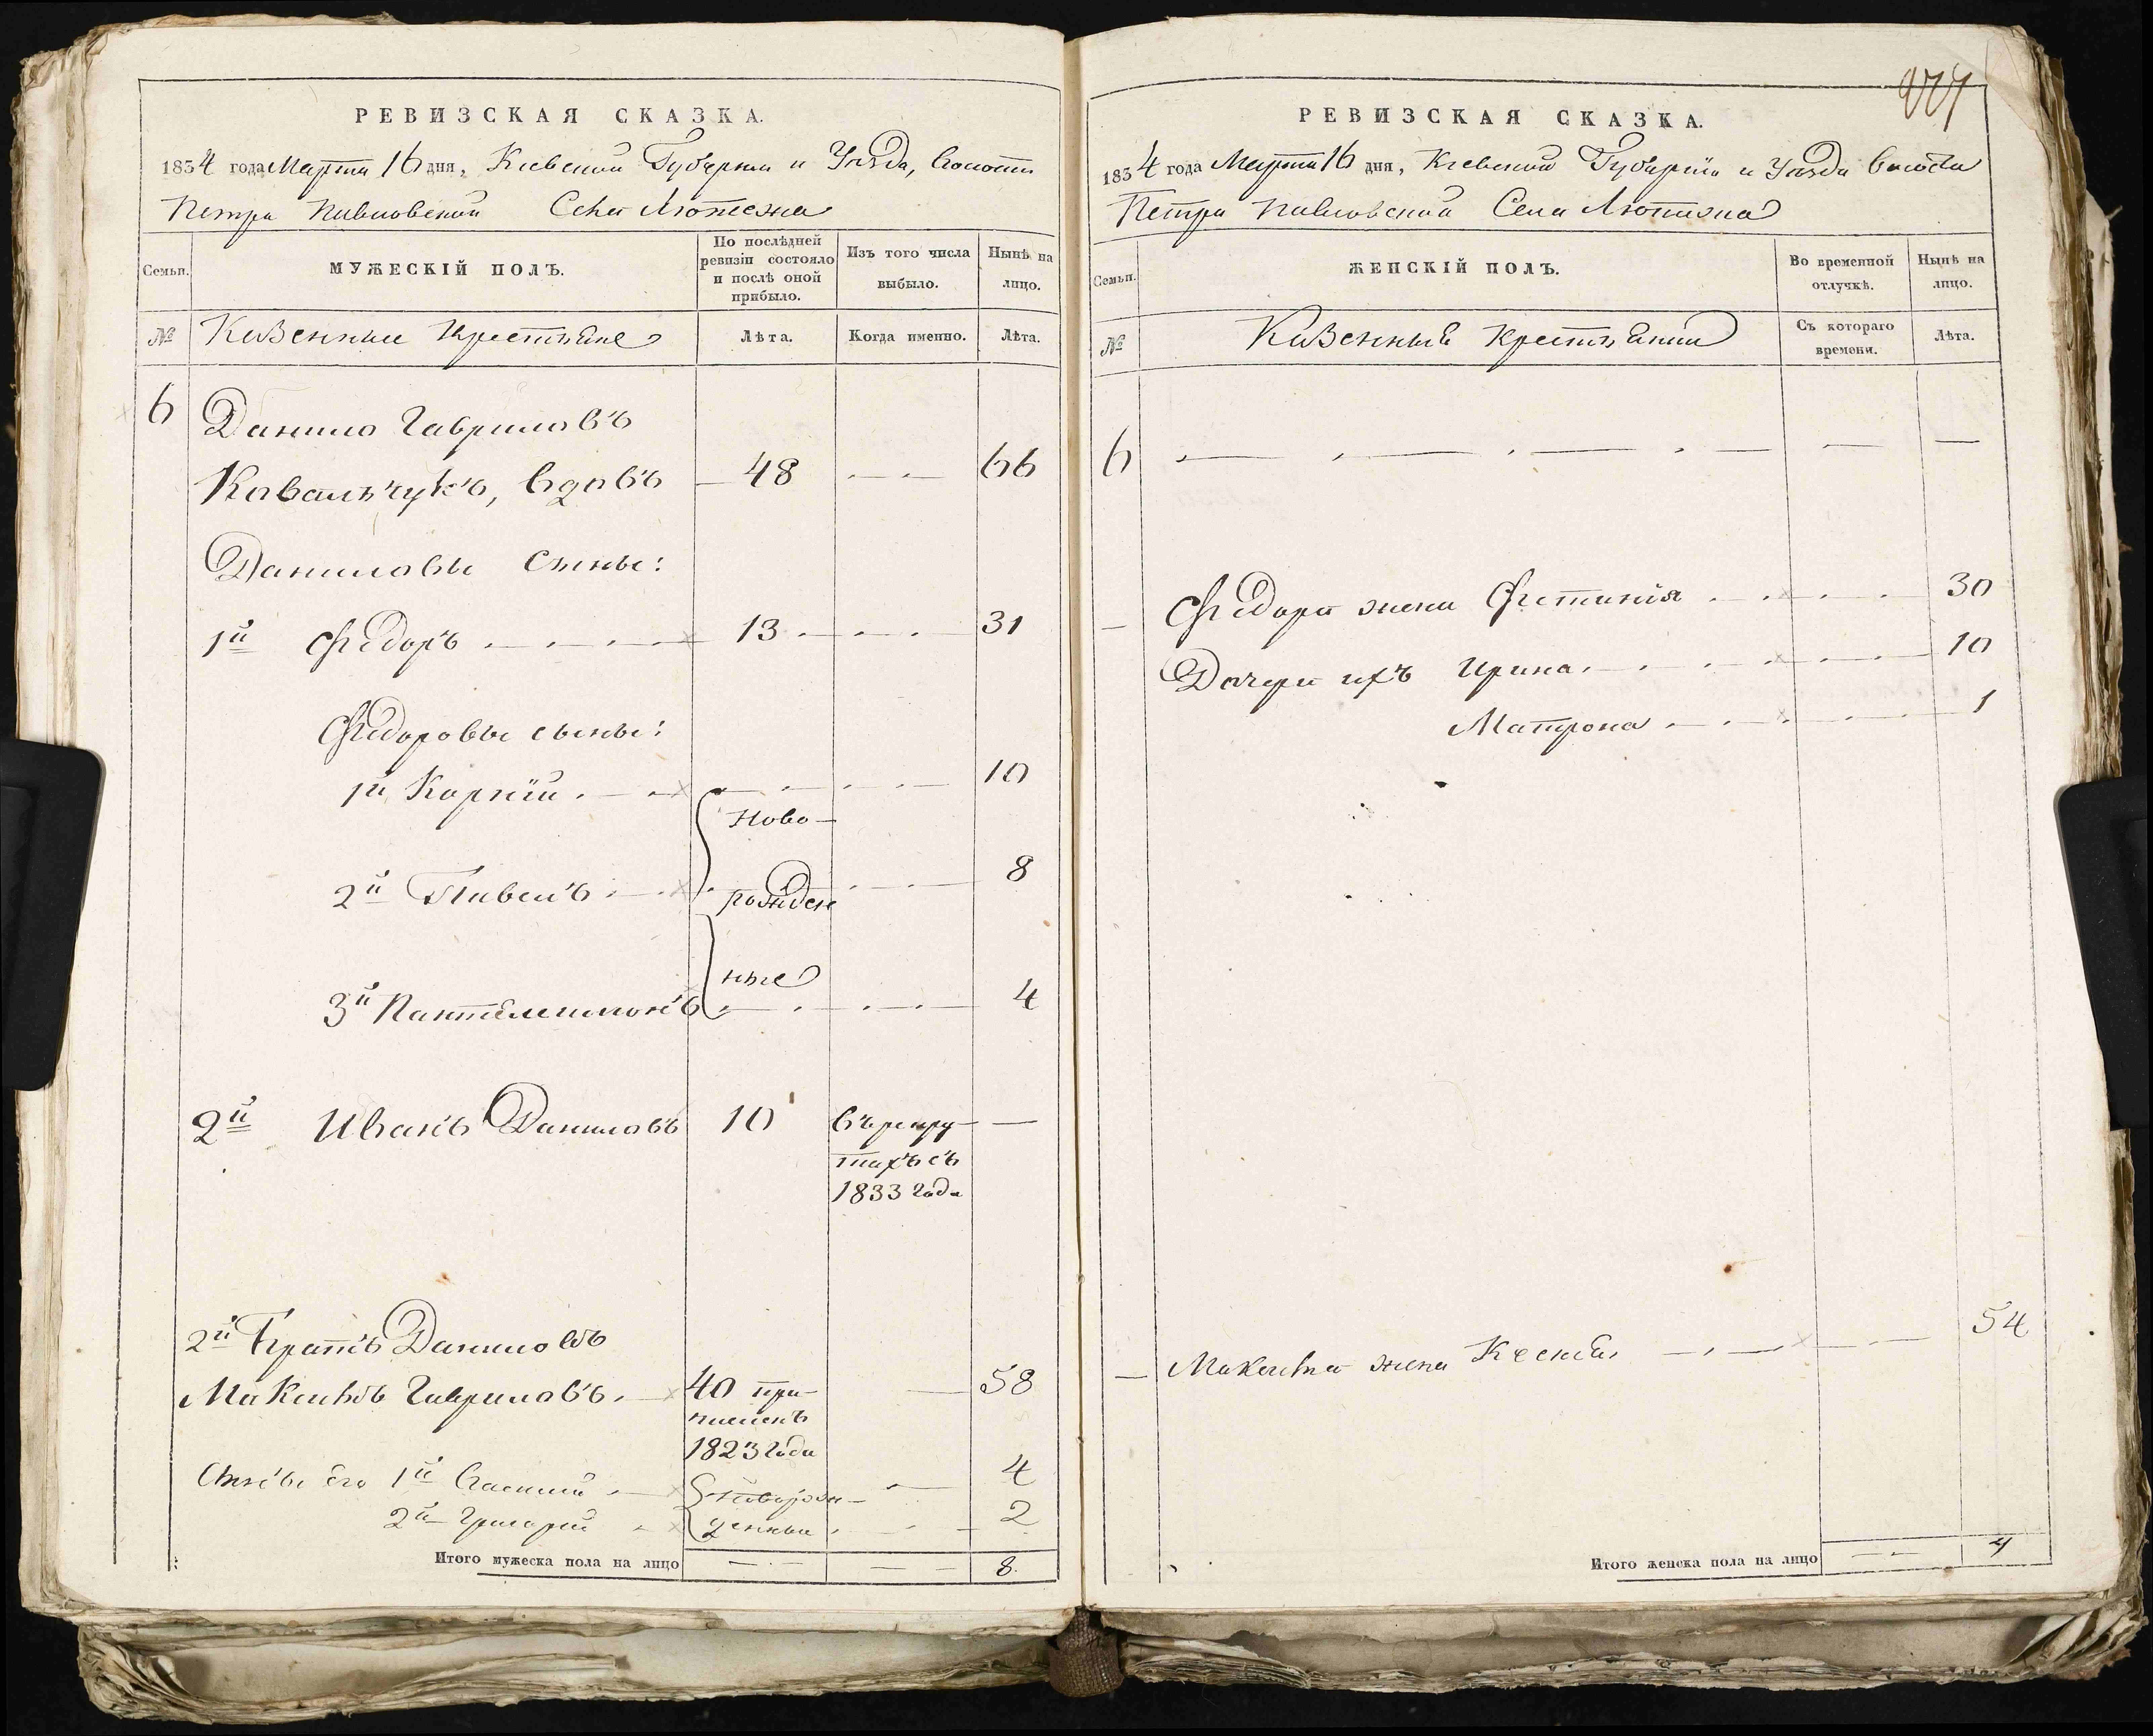 РЕВИЗСКАЯ СКАЗКА.
1834 года Марта 16 дня, Кіевской Губерніи и Уѣзда, Волости
Петро Павловской Села Лютежа
Семьи. МУЖЕСКІЙ ПОЛЪ. По послѣдней ревизіи состояло и послѣ оной прибыло. Изъ того числа выбыло. Нынѣ на лицо.
№ Казенныи Крестьяне Лѣта. Когда именно. Лѣта.
6 Данило Гавриловъ
Ковальчукъ, вдовъ 48 66
Даниловы сыны:
1й Федоръ 13 31
Федоровы сыны:
1й Корній 10
Ново-
2й Павелъ 8
рожден
ные
3й Пантелеимонъ 4
2й Иванъ Даниловъ 10 въ рекру-
тахъ съ
1833 года
2й Братъ Даниловъ
Максимъ Гавриловъ 40 при- 58
численъ
1823 года
Сынъвя его 1й Василій новорож- 4
2й Григорій денныи 2
Итого мужеска пола на лицо 8.
РЕВИЗСКАЯ СКАЗКА.
1834 года Марта 16 дня, Кіевской Губерніи и Уѣзда Волости
Петро Павловской Села Лютежа
Семьи. ЖЕНСКІЙ ПОЛЪ. Во временной отлучкѣ. Нынѣ на лицо.
№ Казенныя Крестьянки Съ котораго времени. Лѣта.
6
Федора жена Фетинія 30
Дочери ихъ Ирина 10
Матрона 1
Максима жена Ксенія 54
Итого женска пола на лицо 4